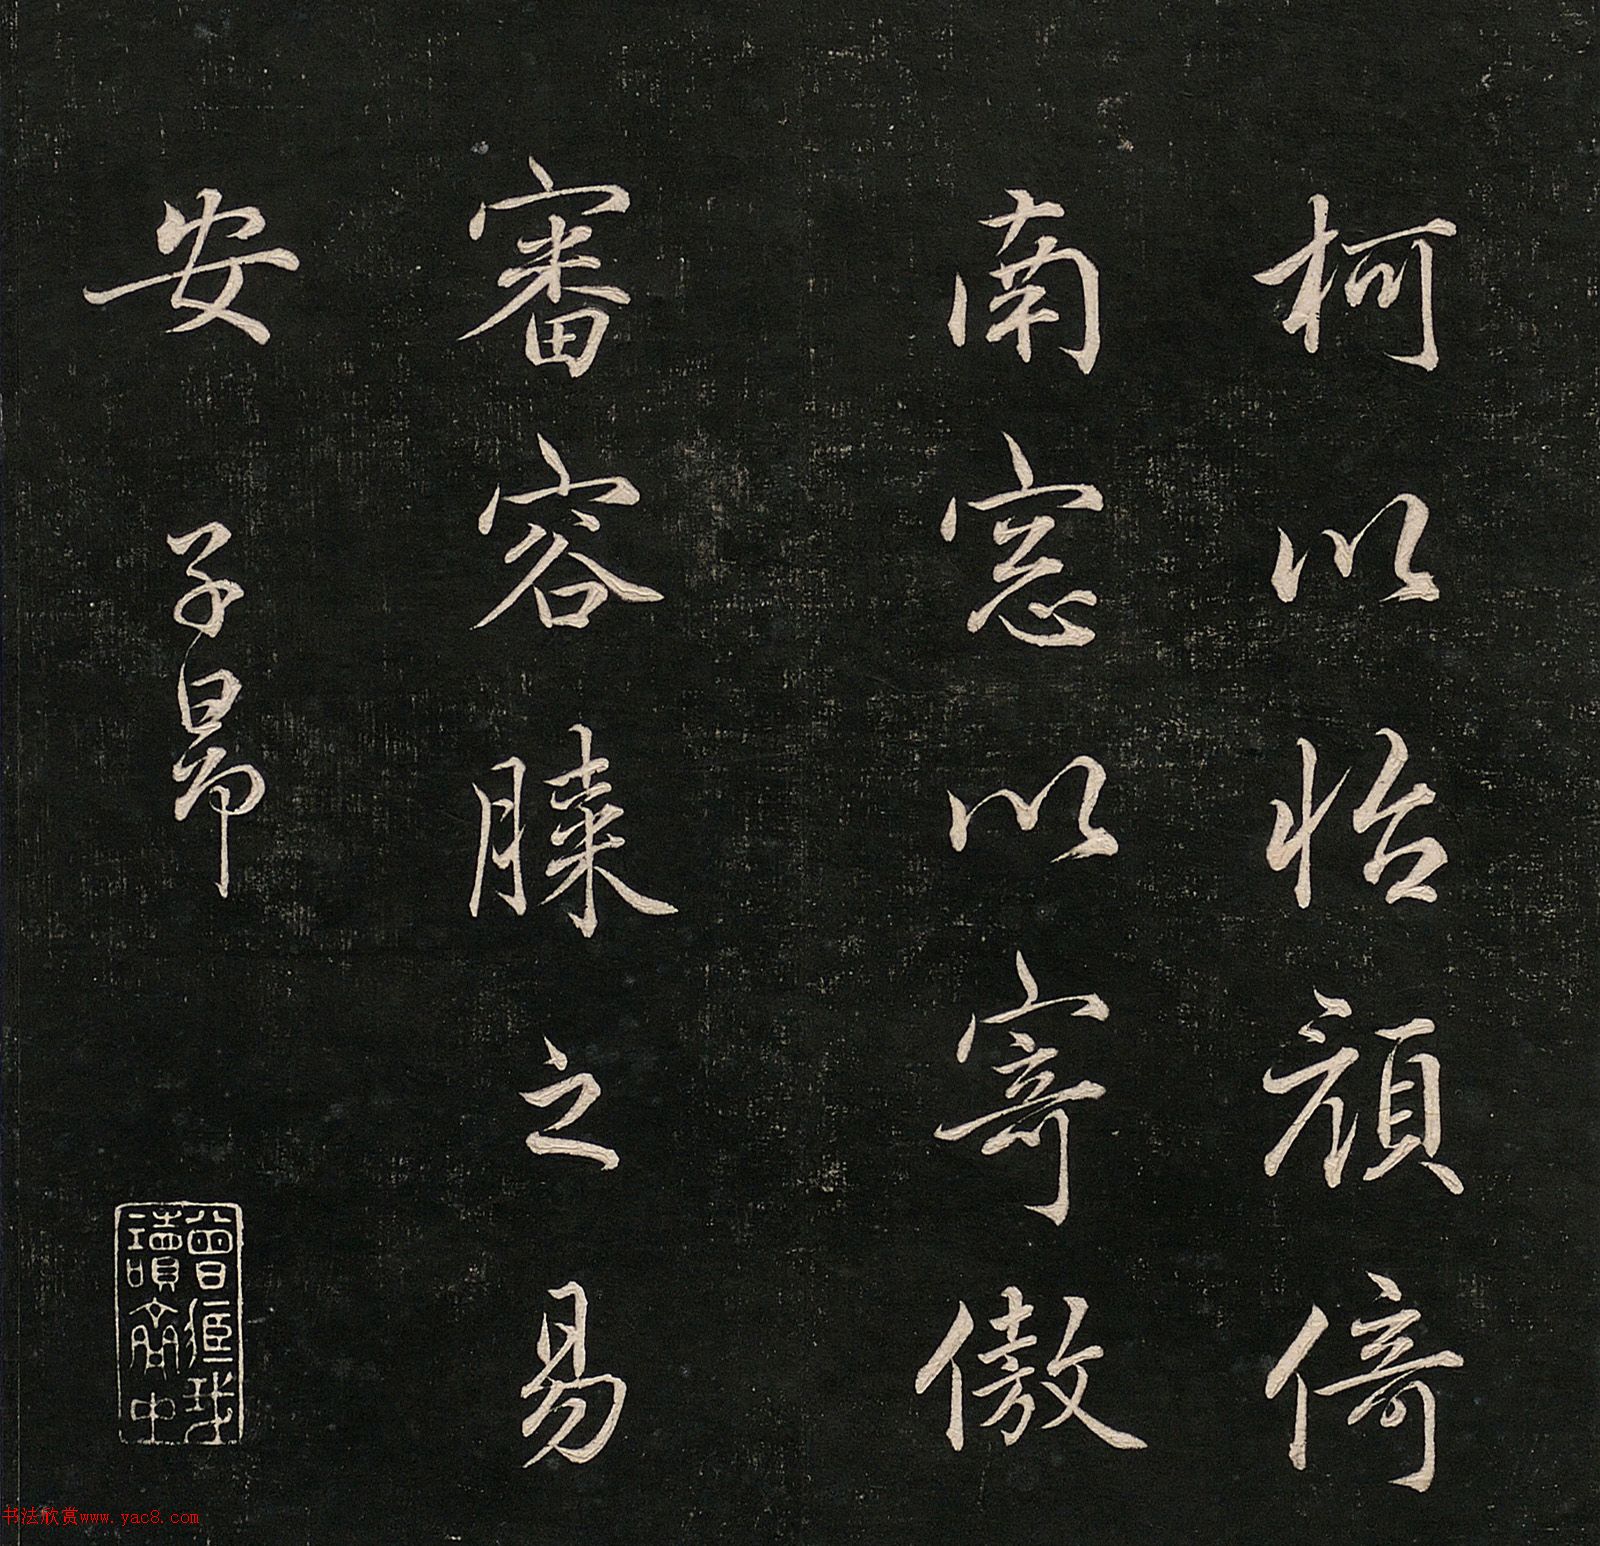 柯以怡顔倚
南窓以寄傲
審容膝之易
安 子昂
曾徑我
讀齋中
书法欣赏www.yac8.com